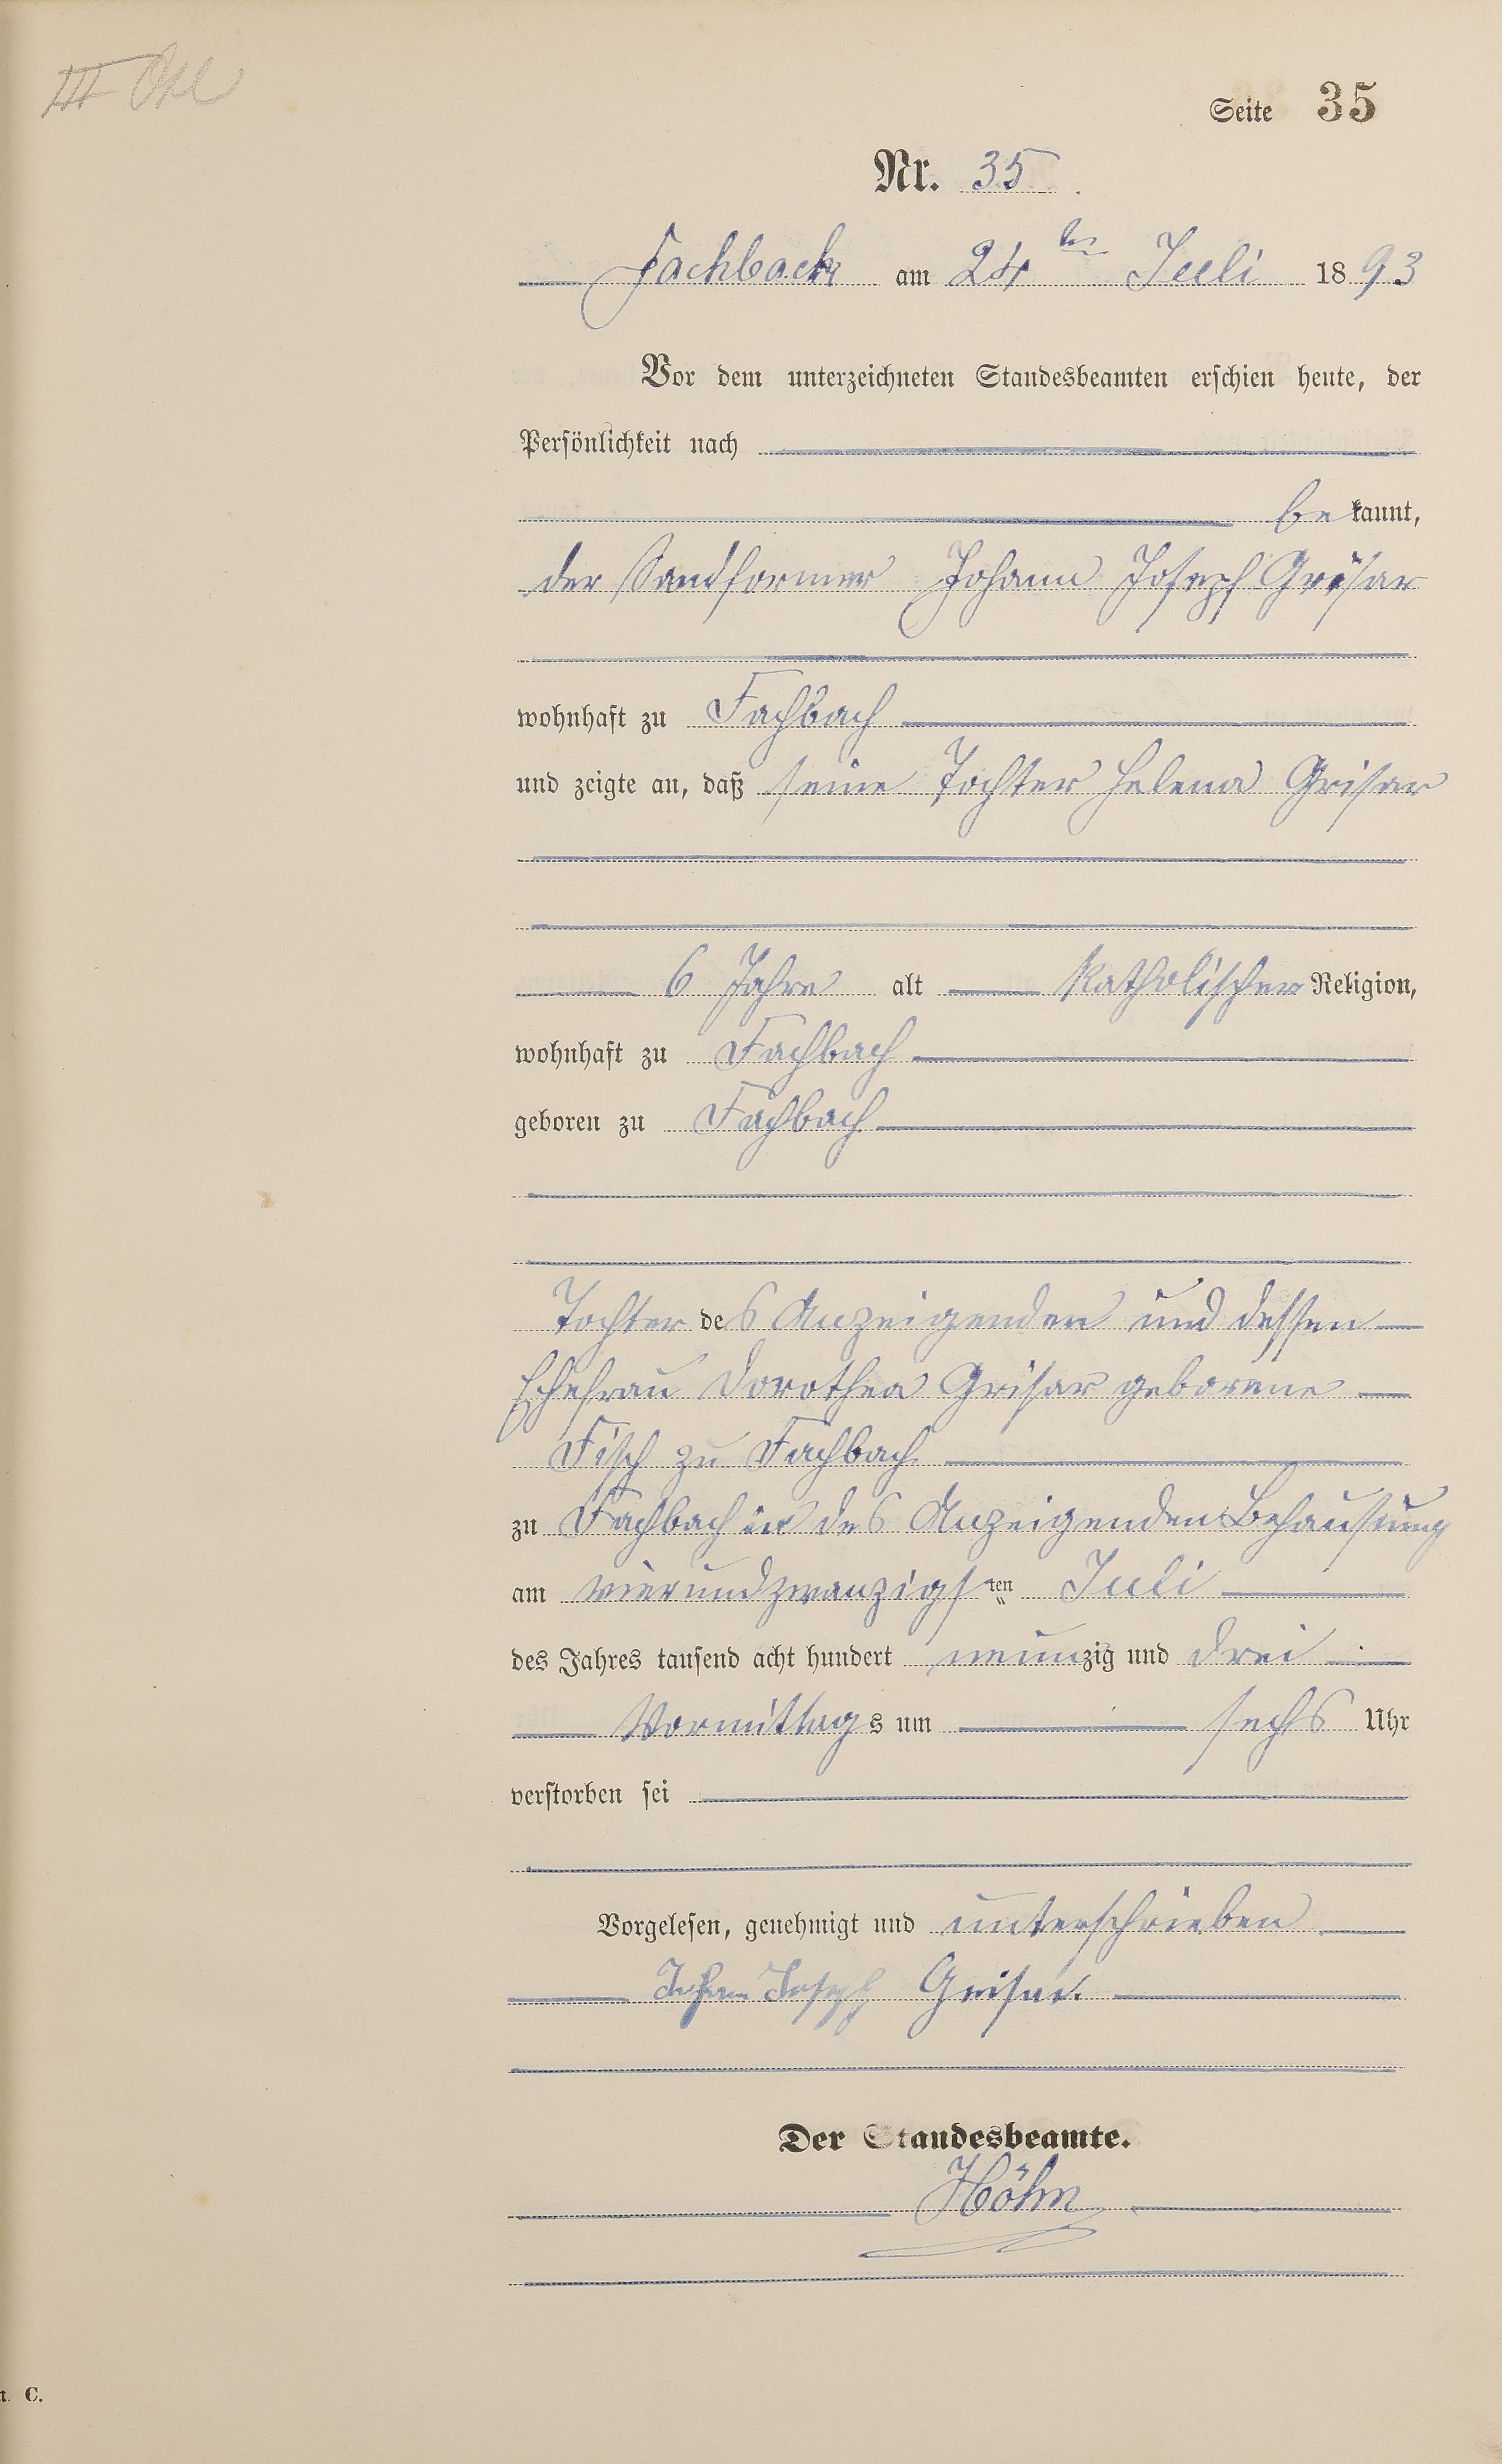 III
Seite 35
Nr. 35
Fachbach am 24ten Juli 1893
Vor dem unterzeichneten Standesbeamten erschien heute, der
Persönlichkeit nach
bekannt,
der Sandformer Johann Joseph Grisar
wohnhaft zu Fachbach
und zeigte an, daß seine Tochter Helena Grisar
6 Jahre alt katholischer Religion,
wohnhaft zu Fachbach
geboren zu Fachbach
Tochter des Anzeigenden und dessen
Ehefrau Dorothea Grisar geborene
Fisch zu Fachbach
zu Fachbach in des Anzeigenden Behausung
am vierundzwanzigsten Juli
des Jahres tausend acht hundert neunzig und drei
Vormittags um sechs Uhr
verstorben sei
Vorgelesen, genehmigt und unterschrieben
Johann Joseph Grisar.
Der Standesbeamte.
Höhn
C.